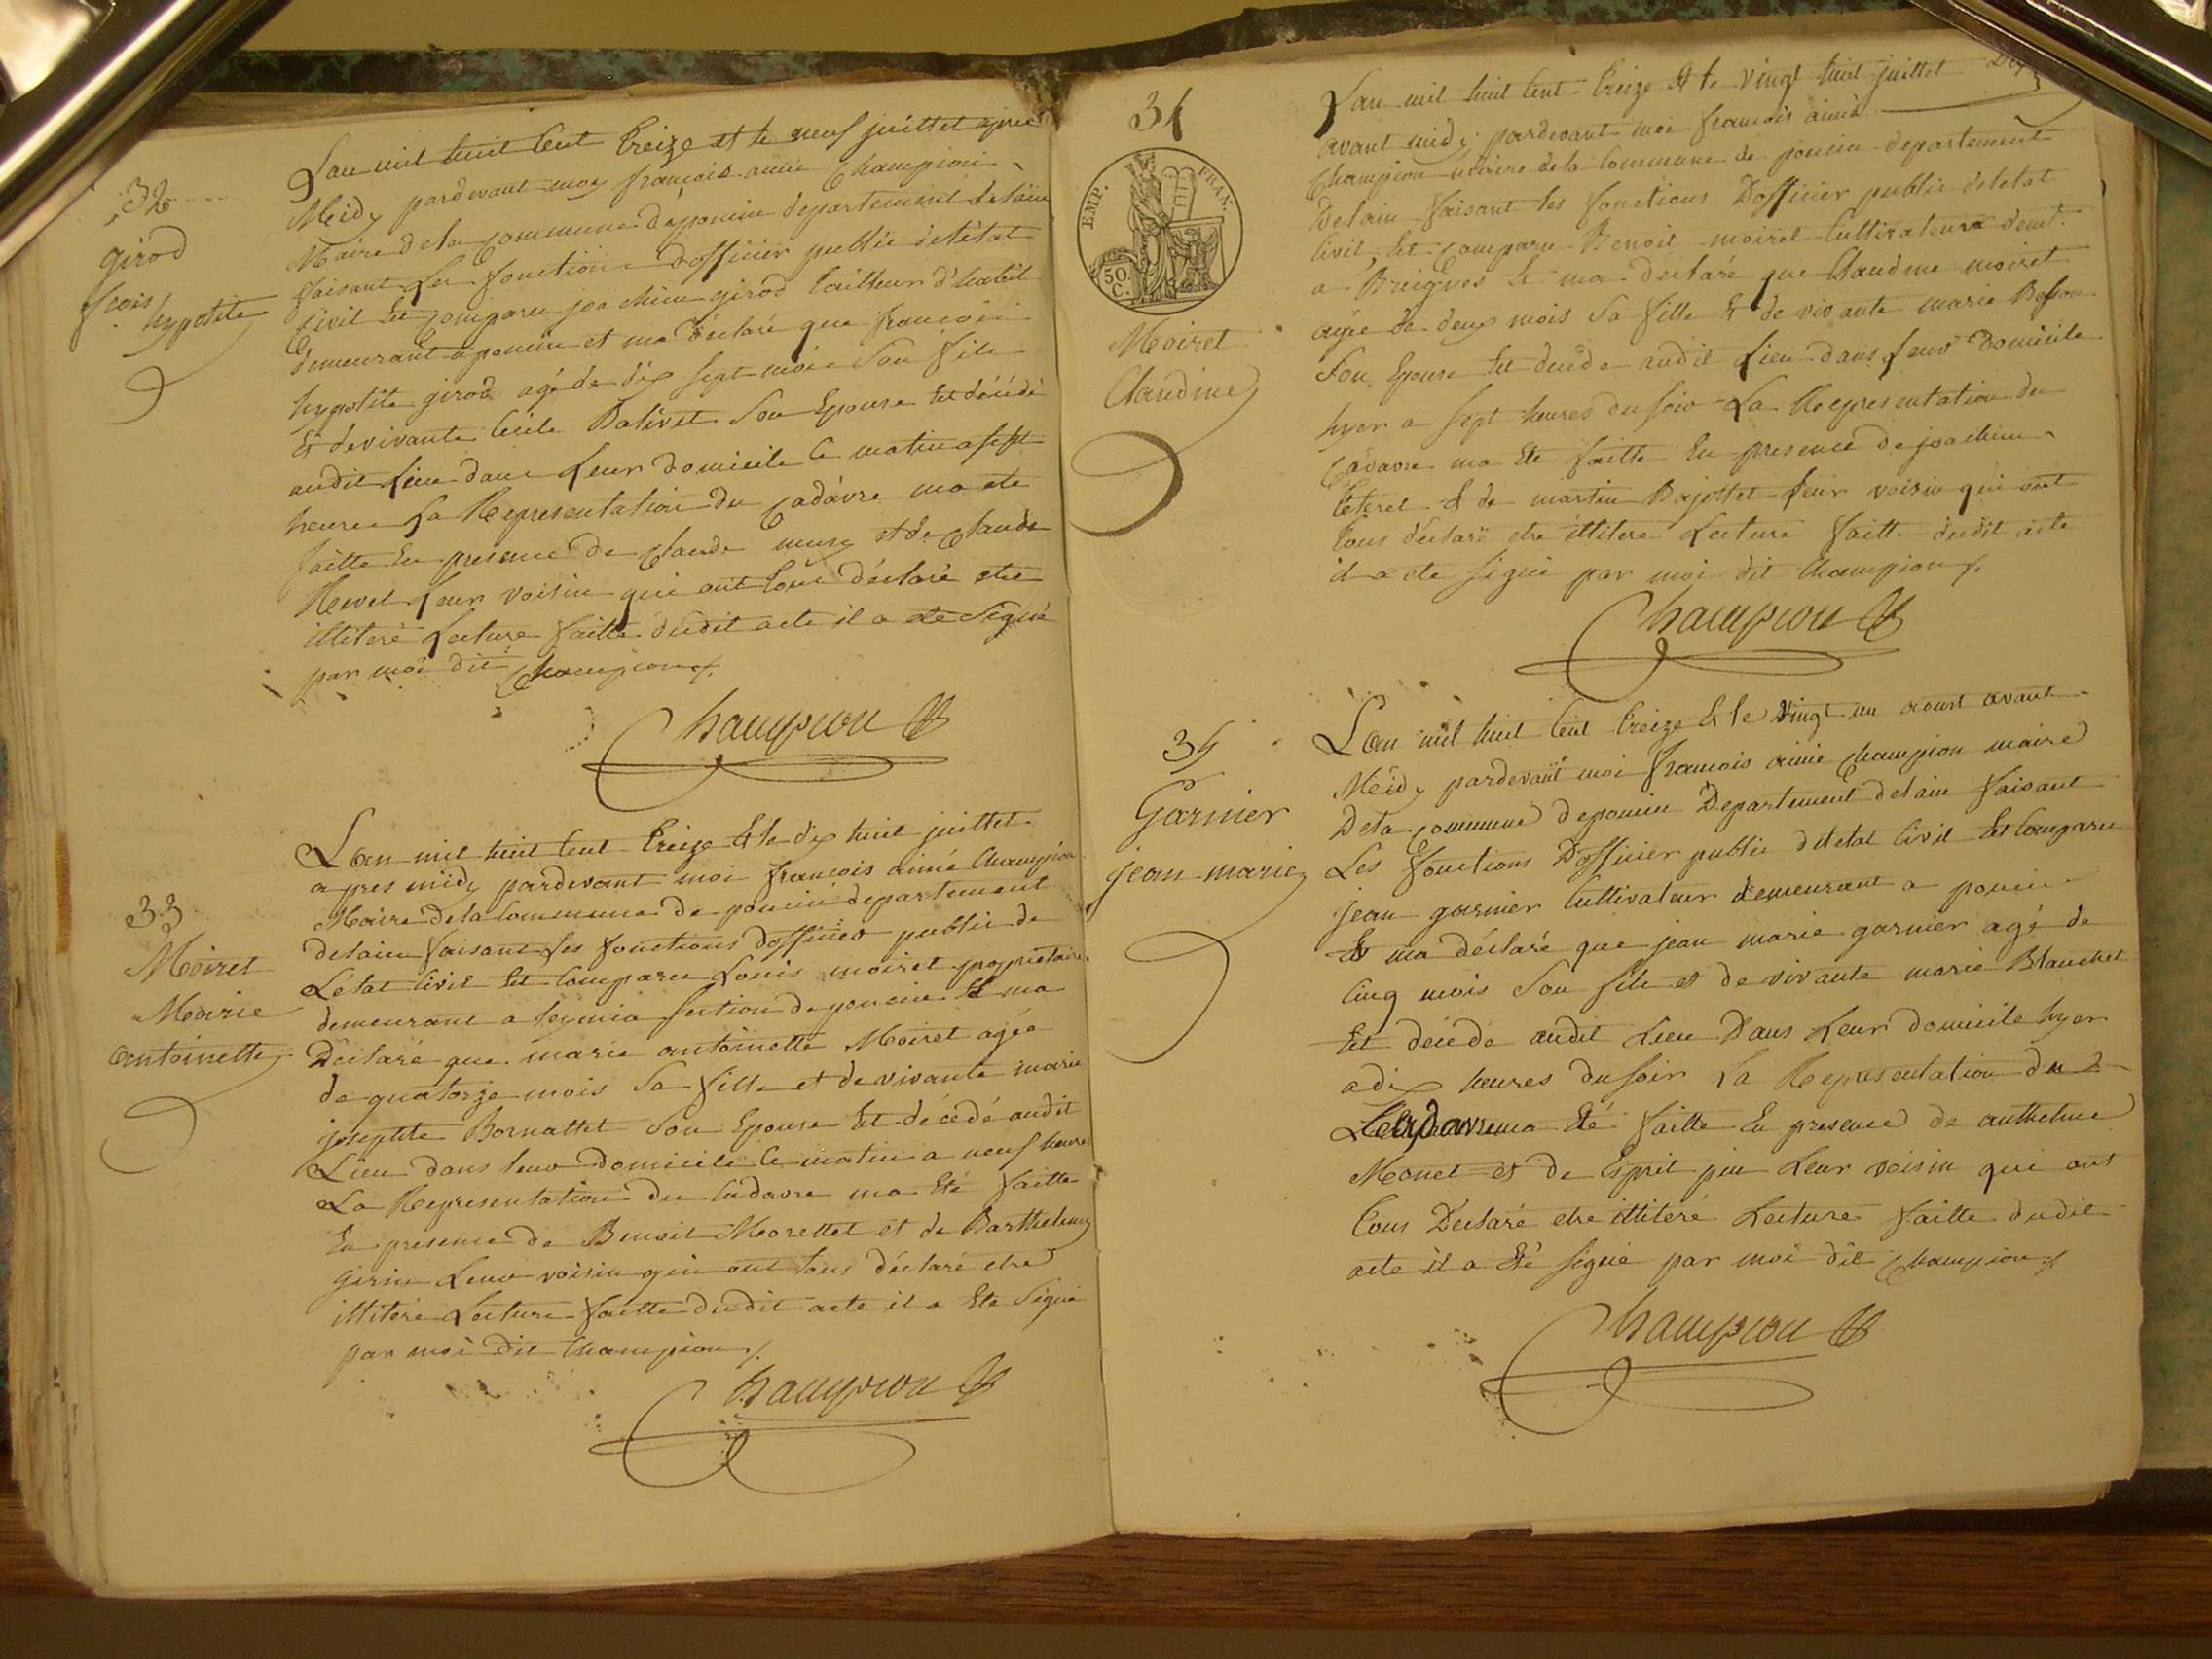 32
girod
frois
hypolite
Lan mil huit Cent treize et le neuf juillet apres
Meidy pardevant moy francois aimé Champion
Maire dela Commune deponcin departement delain
faisant Les fonctions dofficier public deletat
Civil Est Comparu joachim girod tailleur d'habit
demeurant a poncin et ma déclaré que francois
hypolite girod agé de dix sept mois Son fils
Et devivante Cécile Balivet Son Epouse Est décédé
audit Lieu dans Leur domicile Ce matin a sept
heures La Representation du Cadavre ma ete
faitte En presence de Claude muny et de Claude
Revel Leur voisin qui ont tous déclaré etre
illiteré Lecture faitte dudit acte il a ete Signé
par moi dit Champion
Champion
33
Moiret
Marie
antoinette
Lan mil huit Cent treize Et le dix huit juillet
apres midy pardevant moi francois aimé Champion
Maire dela Commune de poncin departement
delain faisant les fonctions dofficier public de
Letat Civil Est Comparu Louis moiret proprietaire
demeurant a Leymia section de poncin Et ma
Déclaré que marie antoinette Moiret agée
de quatorze mois Sa fille et de vivante marie
josephte Bornattet Son Epouse Est décédé audit
Lieu dans leur domicile Ce matin a neuf heures
La Representation du Cadavre ma Eté faitte
En presence de Benoit Morettet et de Barthelemy
girin Leur voisin qui ont tous déclaré etre
illiteré Lecture faitte dudit acte il a Eté Signé
par moi dit Champion
Champion
34
TEMP.
FRAN.
50
C.
Moiret
Claudine
Lan mil huit Cent treize Et le vingt huit juillet
avant midy pardevant moi francois aimé
Champion maire dela Commune de poncin departement
Delain faisant les fonctions Dofficier public deletat
Civil, Est Comparu Benoit moiret Cultivateur demt.
a Breignes Et ma déclaré que Claudine moiret
agée de deux mois Sa fille Et de vivante marie Besson
Son Epouse Est decede audit Lieu dans Leur Domicile
hyer a sept heures du soir La Representation du
Cadavre ma Ete faitte En presence de joachim
teteret & de martin Bajottet Leur voisin qui ont
tous déclaré etre illitere Lecture faitte dudit acte
il a ete signé par moi dit Champion
Champion
35
Garnier
jean marie
Lan mil huit Cent treize Et le vingt un aoust avant
Meidy pardevant moi francois aimé Champion maire
Dela Commune deponcin Departement delain faisant
Les fonctions Dofficier public deletat Civil Est Comparu
jean garnier Cultivateur demeurant a poncin
Et ma déclaré que jean marie garnier agé de
Cinq mois Son fils et de vivante marie Blanchet
Est décédé audit Lieu Dans Leur domicile hyer
a dix heures du soir La Representation du
Cadavre ma Eté faitte En presence de anthelme
Monet et de Esprit pin Leur voisin qui ont
tous Declaré etre illiteré Lecture faitte dudit
acte il a Eté signé par moi dit Champion
Champion